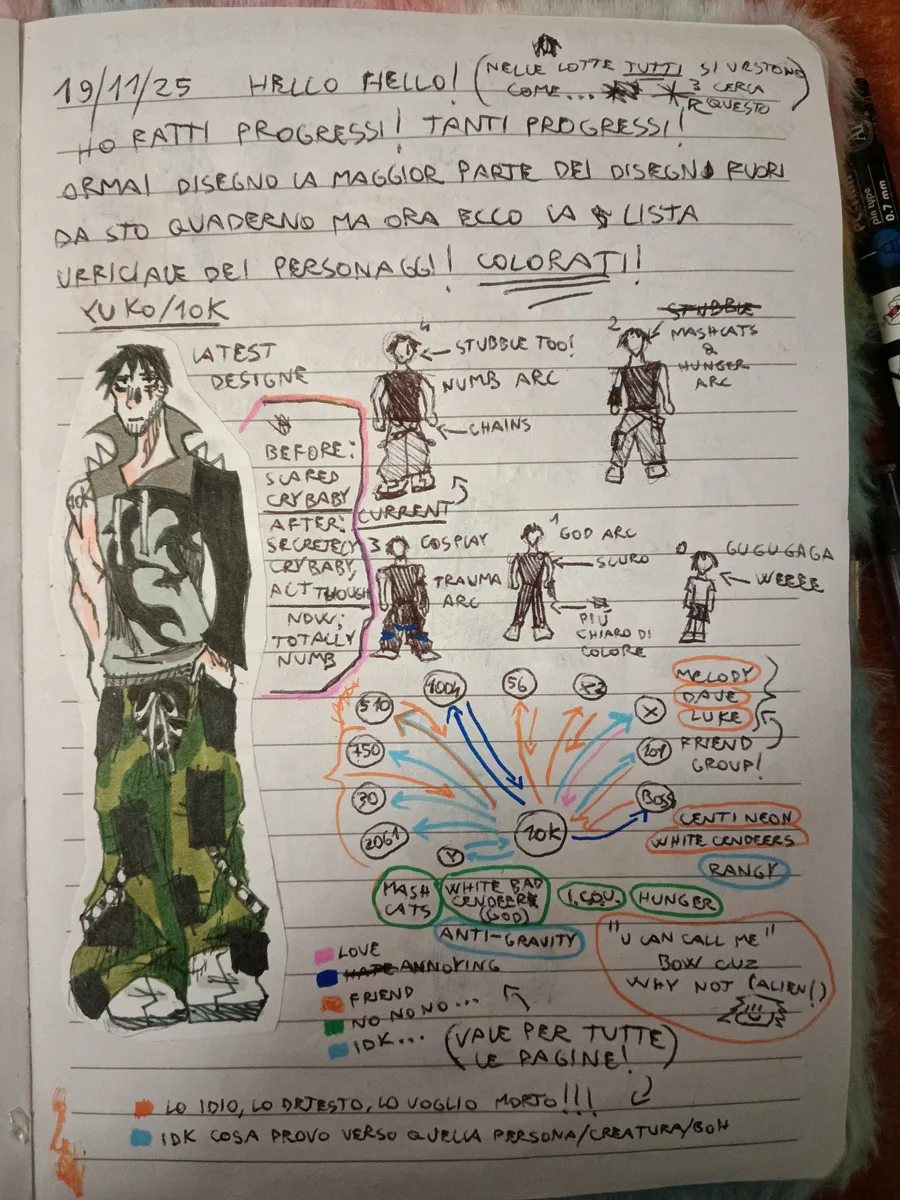 19/11/25 HELLO HELLO! (NELLE LOTTE TUTTI SI VESTONO
COME... 3 CERCA
QUESTO
HO FATTI PROGRESSI! TANTI PROGRESSI!
ORMAI DISEGNO LA MAGGIOR PARTE DEI DISEGNI FUORI
DA STO QUADERNO MA ORA ECCO LA LISTA
UFFICIALE DEI PERSONAGGI! COLORATI!
YUKO/10K
LATEST
DESIGNE
BEFORE:
SCARED
CRYBABY
AFTER:
SECRETELY
CRYBABY,
ACT THOUGH
NOW:
TOTALLY
NUMB
4
STUBBLE TOO!
NUMB ARC
CHAINS
CURRENT
2
STUBBLE
MASHCATS
&
HUNGER
ARC
3
COSPLAY
TRAUMA
ARC
1
GOD ARC
SCURO
PIÙ
CHIARO DI
COLORE
0
GUGUGAGA
WEEEE
10K
510
1004
56
X
750
101
30
BOSS
2061
Y
10K
MELODY
DAVE
LUKE
FRIEND
GROUP!
CENTI NEON
WHITE CENDEERS
RANGY
MASH
CATS
WHITE BAD
CENDEER
(GOD)
HUNGER
ANTI-GRAVITY
"U CAN CALL ME"
BOW CUZ
WHY NOT (ALIEN!)
LOVE
HATE ANNOYING
FRIEND
NO NO NO...
IDK...
(VALE PER TUTTE
LE PAGINE!)
LO IDIO, LO DETESTO, LO VOGLIO MORTO!!!
IDK COSA PROVO VERSO QUELLA PERSONA/CREATURA/BOH
pin type
0.7 mm